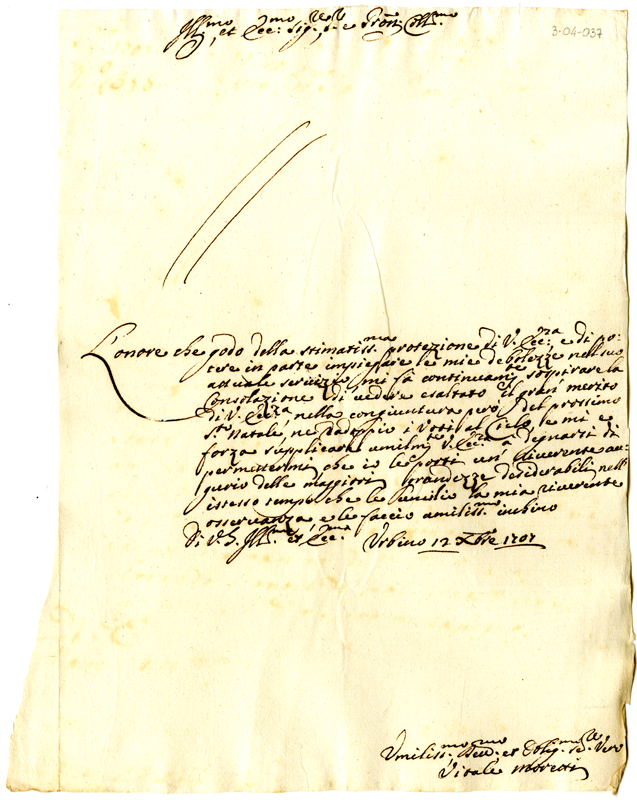 Ill.mo, et Ecc.mo Sig.re, e Pron Coll.mo
3-04-037
L'onore che godo della stimatiss.ma protezione di V. Ecc.za e di po-
tere in parte impiegare le mie debolezze nell suo
attuale servizio, mi fà continuam.te sospirare la
Consolazione di vedere esaltato il gran merito
di V. Ecc.za, nella congiuntura però del prossimo
S.to Natale, ne radoppio i voti al Cielo, e mi è
forza supplicare umilm.te V. Ecc.za a degnarsi di
permettermi che io le porti un' riverente au-
gurio delle maggiori Grandezze desiderabili nell'
istesso tempo che le umilio la mia riverente
osservanza, e le faccio umiliss.mo inchino
Di V. S. Ill.ma et Ecc.ma Urbino 12 Xbre 1707
Umiliss.mo Dev.mo et Oblig.mo Se.re Vero
Vitale Moretti